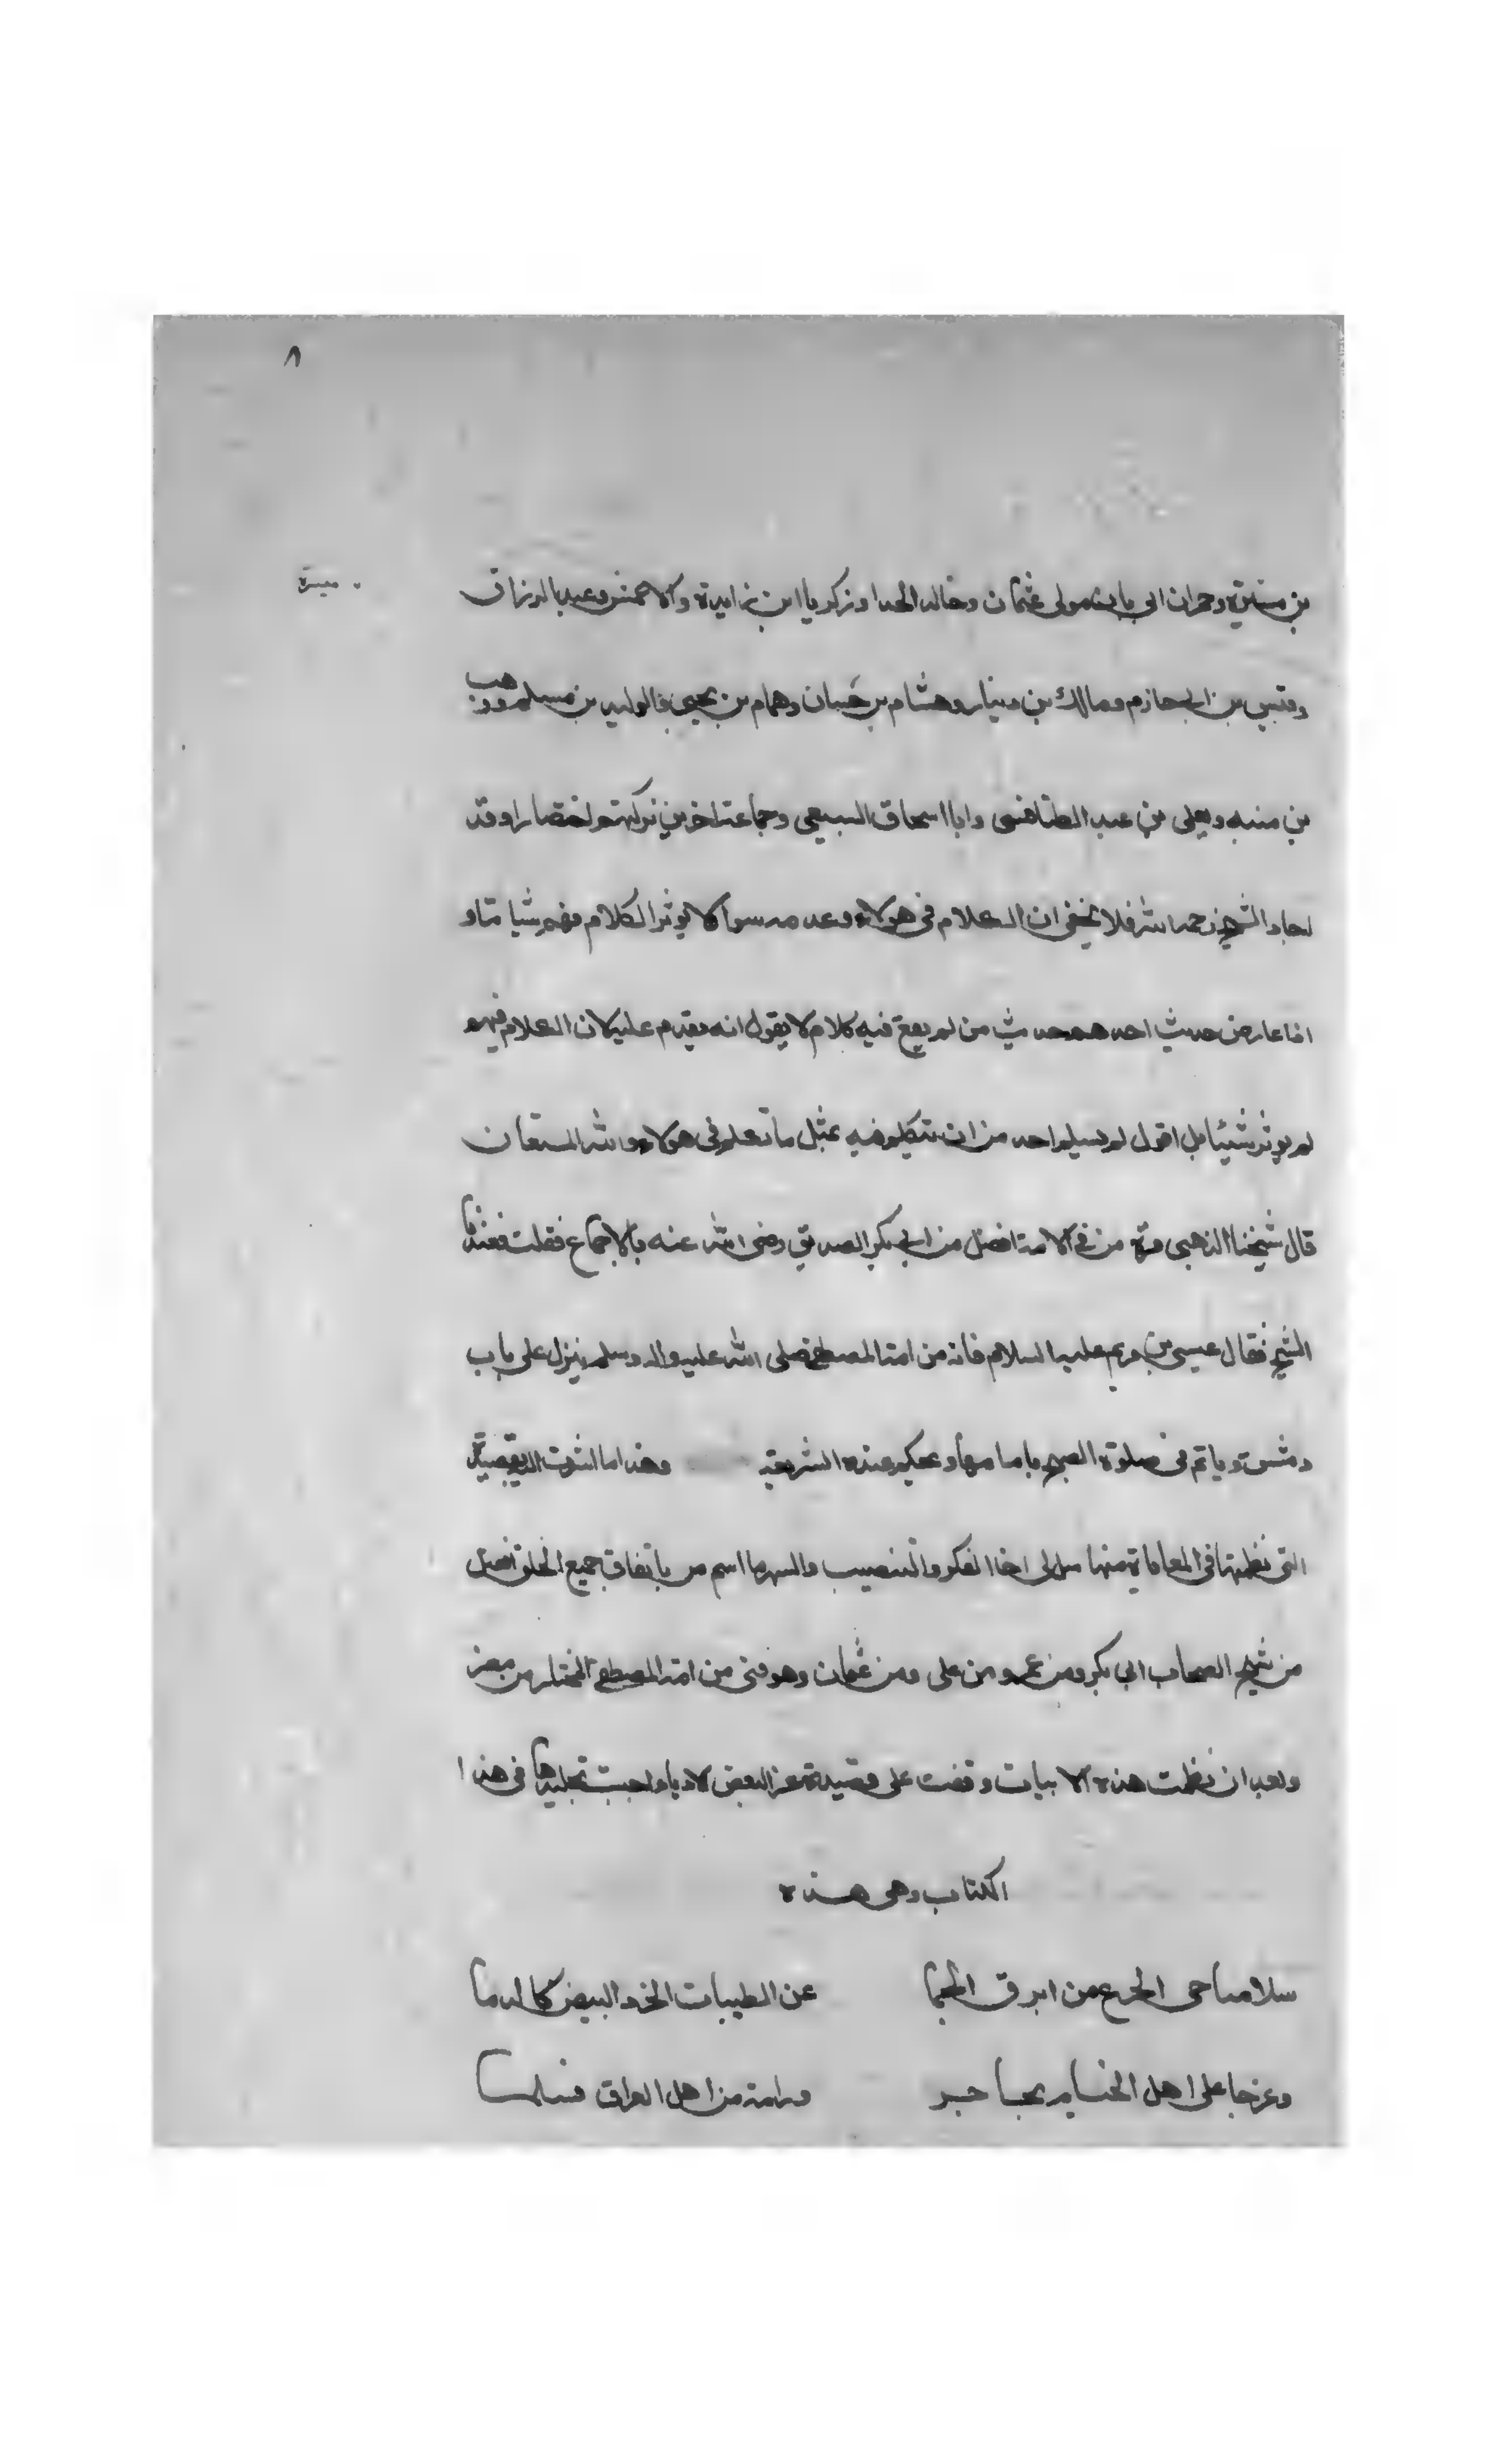 ٨
ميسرة
بن ميسرة وحمران ابى بابن مولى عثمان وخالد الحدا وزكريا ابن زايدة والاعمش وعبد الرزاق
وقيس بن ابى حازم ومالك بن دينار وهشام بن حسان وهمام بن يحيى والوليد بن مسلم ووهب
بن منبه ويعلى بن عبيد الطنافسى وابا اسحاق السبيعى وجماعة اخرين تركتهم اختصارا وقد
اجاد الشيخ رحمه الله فلا يخفى ان الكلام فى هولاء وعدمه سوا لا يوثر الكلام فيهم شيا متا و
اذا عارض حديث احدهم حديث من لم يقع فيه كلام لا يقول انه يقدم عليه لان الكلام فيهم
لم يوثر شيئا بل اقول لم يسلم احد من ان يتكلم فيه بمثل ما تكلم فى هولاء والله المستعان
قال شيخنا الذهبى مرة من فى الامة افضل من ابى بكر الصديق رضى الله عنه بالاجماع فقلت فعندنا
الشيخ فقال عيسى بن مريم عليه السلام فانه من امة المصطفى صلى الله عليه واله وسلم ينزل على باب
دمشق وياتم فى صلوة الصبح بامامها ويحكم بهذه الشريعة وهذا
التى نظمتها فى المعاياة منها اخا الفكر والتنصيب والسهر ما اسم من باتفاق جميع الخلق افضل
من شيخ الصحاب ابى بكر ومن عمر ومن على ومن عثمان وهو فتى من امة المصطفى المختار من مضر
وبعد ان نظمت هذه الابيات وقفت على قصيدة لبعض الادباء احببت تخليدها فى هذا
الكتاب وهى هذه
سلا صاحبى الجرع من ابرق الحما عن الطيبات الخرد البيض كالدما
وعوجا على اهل الخيام بحاجر ورامة من اهل العراق فسلما